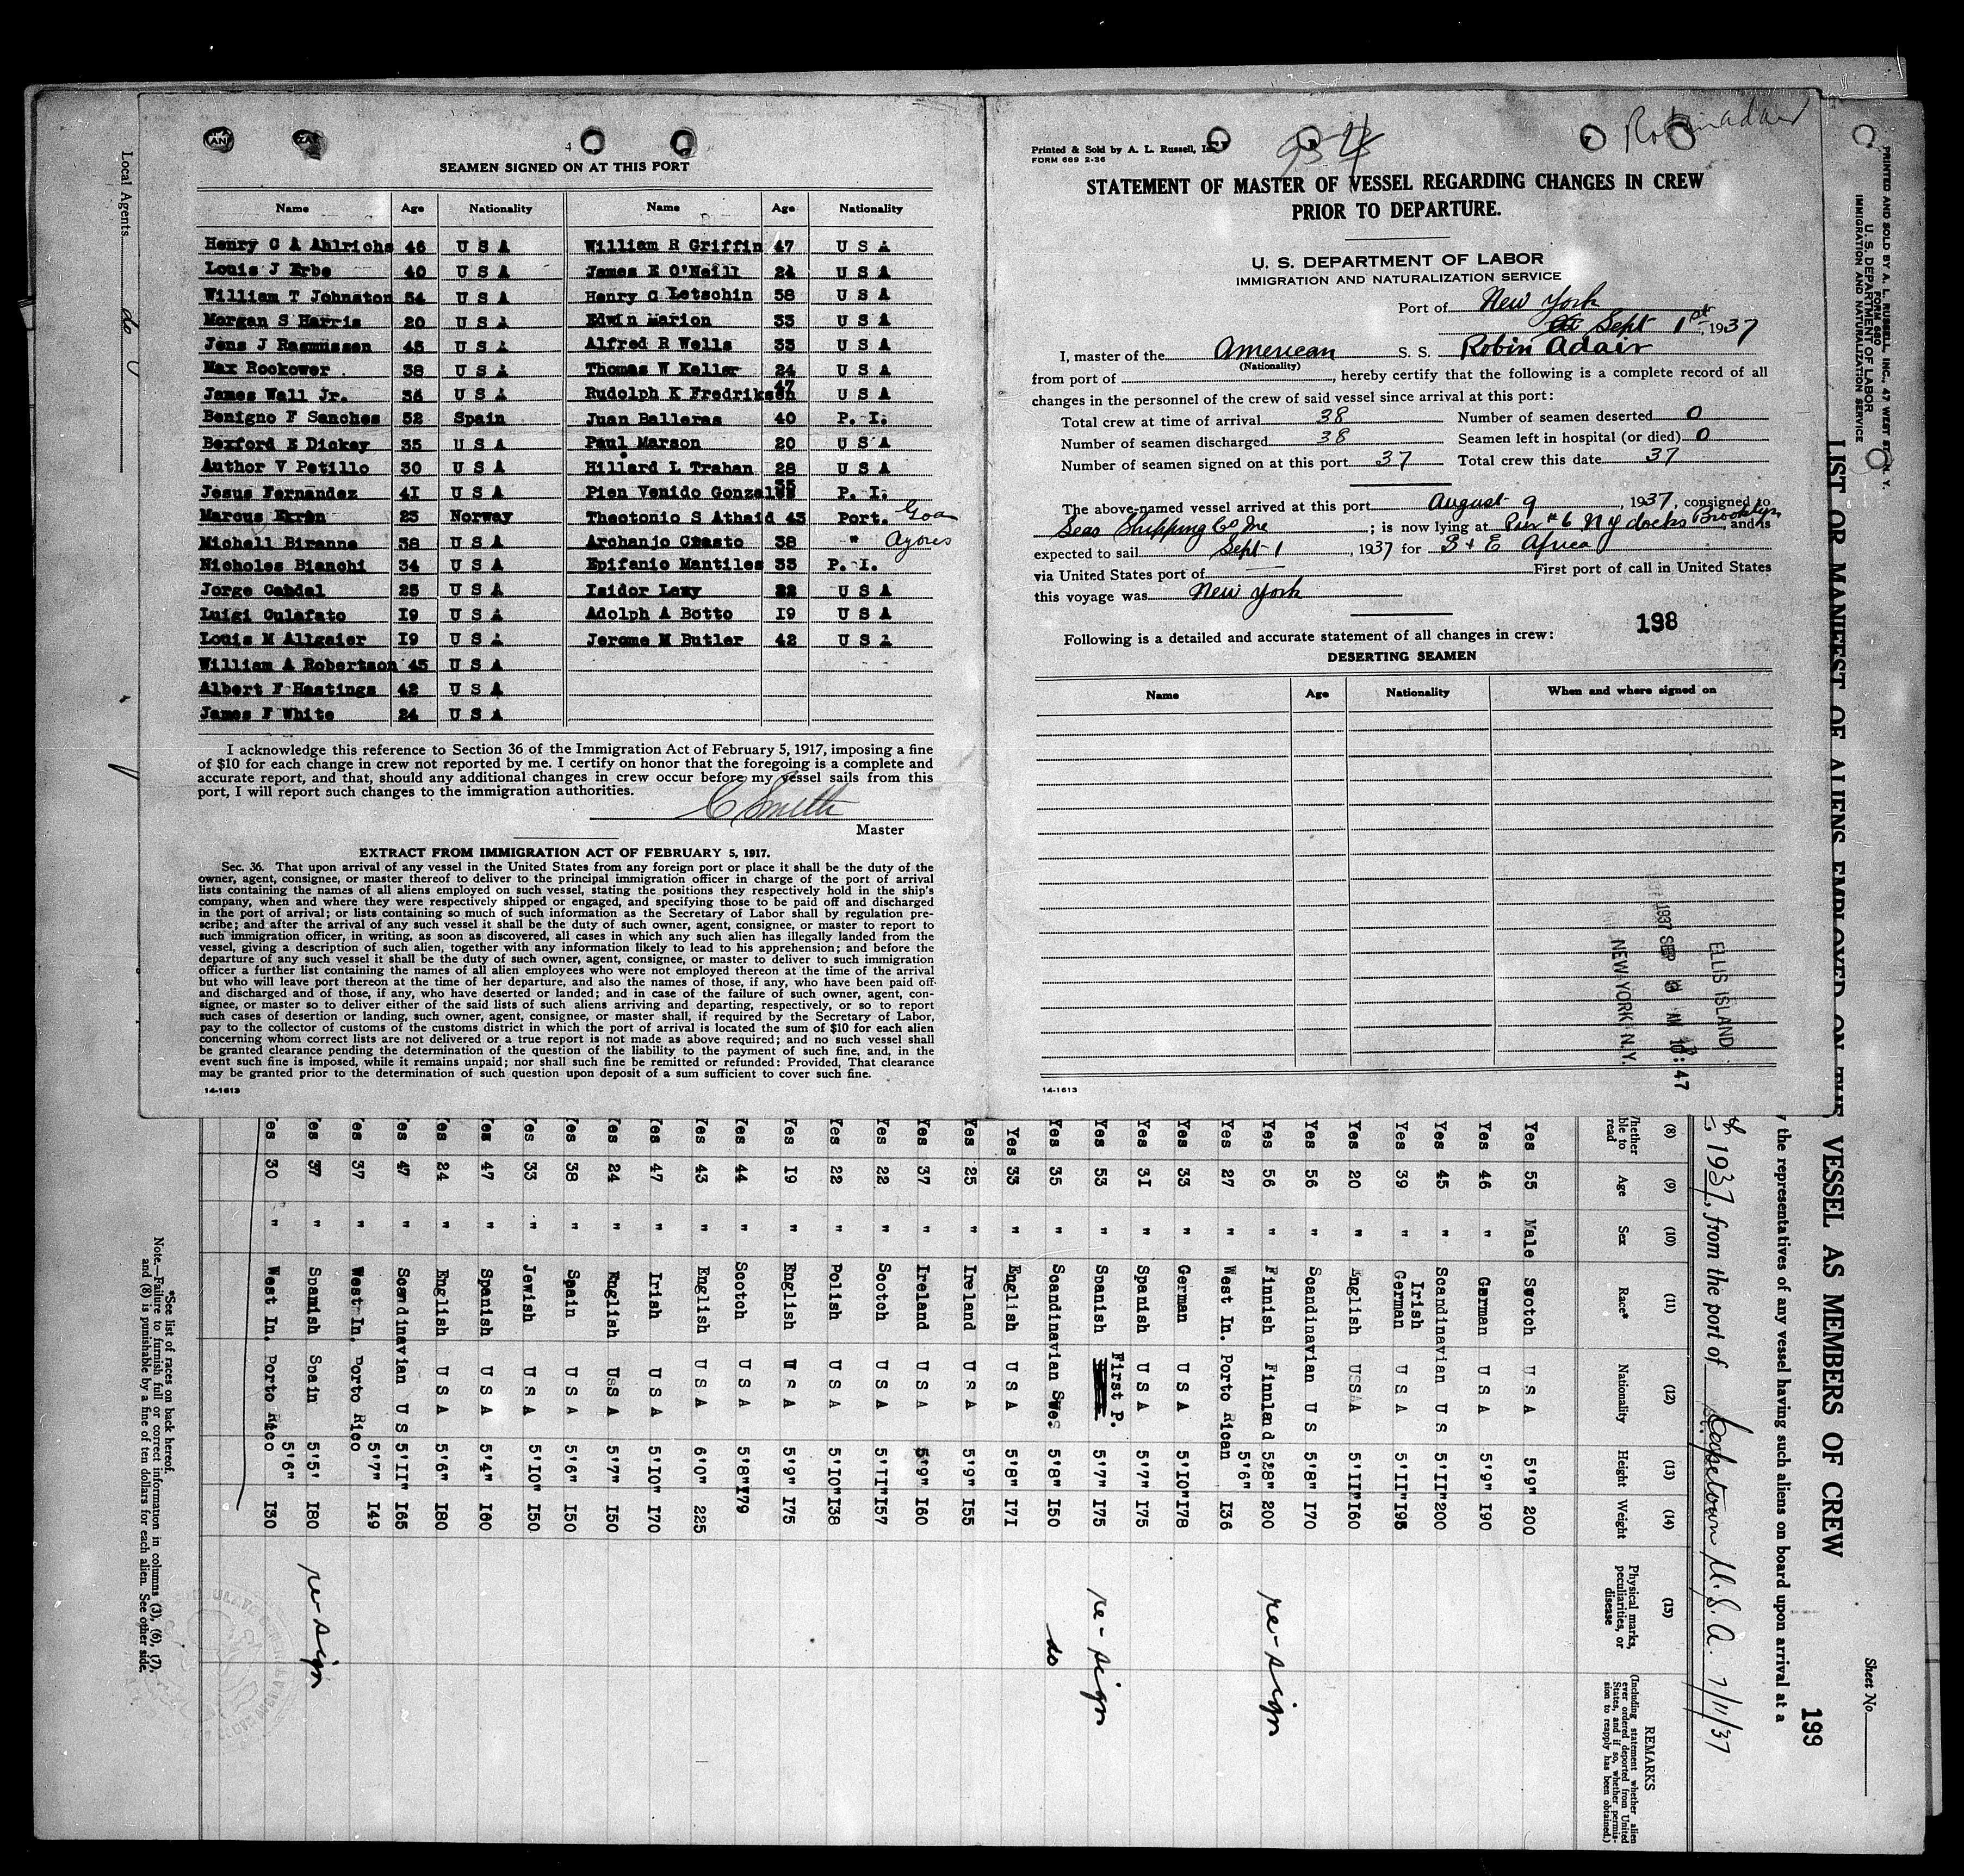 Local Agents do
SEAMEN SIGNED ON AT THIS PORT
Name Age Nationality Name Age Nationality
Henry C A Ahlrichs 46 U S A William R Griffin 47 U S A
Louis J Erbe 40 U S A James E O'Neill 24 U S A
William T Johnston 54 U S A Henry C Letschin 58 U S A
Morgan S Harris 20 U S A Edwin Marion 33 U S A
Jens J Rasmussen 45 U S A Alfred R Wells 33 U S A
Max Rockower 38 U S A Thomas W Keller 24 U S A
James Wall Jr. U S A Rudolph K Fredriksen 47 U S A
Benigno F Sanches 52 Spain Juan Balleras 40 P. I.
Bexford E Dickey 35 U S A Paul Marson 20 U S A
Author V Petillo 30 U S A Hillard L Trahan 28 U S A
Jesus Fernandez 41 U S A Pien Venido Gonzales 35 P. I.
Marcus Ekren 23 Norway Theotonio S Athaid 43 Port. Goa
Michell Biranne 38 U S A Archanjo 38 " Azores
Nicholes Bianchi 34 U S A Epifanio Mantiles 33 P. I.
Jorge 25 U S A Isidor Levy 22 U S A
Luigi Culafato I9 U S A Adolph A Botto I9 U S A
Louis M Allgaier I9 U S A Jerome M Butler 42 U S A
William A Robertson 45 U S A
Albert F Hastings 42 U S A
James F White 24 U S A
I acknowledge this reference to Section 36 of the Immigration Act of February 5, 1917, imposing a fine
of $10 for each change in crew not reported by me. I certify on honor that the foregoing is a complete and
accurate report, and that, should any additional changes in crew occur before my vessel sails from this
port, I will report such changes to the immigration authorities.
C Smith
Master
EXTRACT FROM IMMIGRATION ACT OF FEBRUARY 5, 1917.
Sec. 36. That upon arrival of any vessel in the United States from any foreign port or place it shall be the duty of the
owner, agent, consignee, or master thereof to deliver to the principal immigration officer in charge of the port of arrival
lists containing the names of all aliens employed on such vessel, stating the positions they respectively hold in the ship's
company, when and where they were respectively shipped or engaged, and specifying those to be paid off and discharged
in the port of arrival; or lists containing so much of such information as the Secretary of Labor shall by regulation pre-
scribe; and after the arrival of any such vessel it shall be the duty of such owner, agent, consignee, or master to report to
such immigration officer, in writing, as soon as discovered, all cases in which any such alien has illegally landed from the
vessel, giving a description of such alien, together with any information likely to lead to his apprehension; and before the
departure of any such vessel it shall be the duty of such owner, agent, consignee, or master to deliver to such immigration
officer a further list containing the names of all alien employees who were not employed thereon at the time of the arrival
but who will leave port thereon at the time of her departure, and also the names of those, if any, who have been paid off
and discharged and of those, if any, who have deserted or landed; and in case of the failure of such owner, agent, con-
signee, or master so to deliver either of the said lists of such aliens arriving and departing, respectively, or so to report
such cases of desertion or landing, such owner, agent, consignee, or master shall, if required by the Secretary of Labor,
pay to the collector of customs of the customs district in which the port of arrival is located the sum of $10 for each alien
concerning whom correct lists are not delivered or a true report is not made as above required; and no such vessel shall
be granted clearance pending the determination of the question of the liability to the payment of such fine, and, in the
event such fine is imposed, while it remains unpaid; nor shall such fine be remitted or refunded: Provided, That clearance
may be granted prior to the determination of such question upon deposit of a sum sufficient to cover such fine.
14-1613
Robin adair
Printed & Sold by A. L. Russell, Inc.
FORM 689 2-36
STATEMENT OF MASTER OF VESSEL REGARDING CHANGES IN CREW
PRIOR TO DEPARTURE.
U. S. DEPARTMENT OF LABOR
IMMIGRATION AND NATURALIZATION SERVICE
Port of New York
Sept 1st, 1937
I, master of the American S. S. Robin Adair
(Nationality)
from port of , hereby certify that the following is a complete record of all
changes in the personnel of the crew of said vessel since arrival at this port:
Total crew at time of arrival 38 Number of seamen deserted 0
Number of seamen discharged 38 Seamen left in hospital (or died) 0
Number of seamen signed on at this port 37 Total crew this date 37
The above-named vessel arrived at this port August 9, 1937, consigned to
Seas Shipping Co Inc ; is now lying at Pier #6 NY docks Brooklyn, and is
expected to sail Sept 1, 1937 for S + E Africa
via United States port of — First port of call in United States
this voyage was New York
198
Following is a detailed and accurate statement of all changes in crew:
DESERTING SEAMEN
Name Age Nationality When and where signed on
ELLIS ISLAND
1937 SEP AM 10:47
NEW YORK N. Y.
14-1613
PRINTED AND SOLD BY A. L. RUSSELL, INC., 47 WEST ST. N. Y.
FORM 680
U. S. DEPARTMENT OF LABOR
IMMIGRATION AND NATURALIZATION SERVICE
Sheet No.
199
LIST OR MANIFEST OF ALIENS EMPLOYED ON THE VESSEL AS MEMBERS OF CREW
the representatives of any vessel having such aliens on board upon arrival at a
1937, from the port of Capetown U.S.A. 7/11/37
(8) (9) (10) (11) (12) (13) (14) (15) REMARKS
Whether able to read Age Sex Race* Nationality Height Weight Physical marks, peculiarities, or disease (Including statement whether alien ever ordered deported from United States, and if so, whether permission to reapply has been obtained.)
Yes 55 Male Scotch U S A 5'9" 200
Yes 46 " German U S A 5'9" I90
Yes 45 " Scandinavian U S 5'II" 200
Yes 39 " Irish German U S A 5'II" I95
Yes 20 " English USSA 5'II" I60
Yes 56 " Scandinavian U S 5'8" I70
Yes 56 " Finnish Finnland 5'8" 200 re-sign
Yes 27 " West In. Porto Rican 5'6" I36
Yes 33 " German U S A 5'I0" I78
Yes 3I " Spanish U S A 5'7" I75
Yes 53 " Spanish First P. 5'7" I75 re-sign
Yes 35 " Scandinavian Swe. 5'8" I50 do
Yes 33 " English U S A 5'8" I7I
Yes 25 " Ireland U S A 5'9" I55
Yes 37 " Ireland U S A 5'9" I60
Yes 22 " Scotch U S A 5'II" I57
Yes 22 " Polish U S A 5'I0" I38
Yes I9 " English U S A 5'9" I75
Yes 44 " Scotch U S A 5'8" I79
Yes 43 " English U S A 6'0" 225
Yes 47 " Irish U S A 5'I0" I70
Yes 24 " English UsS A 5'7" I50
Yes 38 " Spain U S A 5'6" I50
Yes 33 " Jewish U S A 5'I0" I50
Yes 47 " Spanish U S A 5'4" I60
Yes 24 " English U S A 5'6" I80
Yes 47 " Scandinavian U S 5'II" I65
Yes 37 " West In. Porto Rico 5'7" I49
Yes 37 " Spanish Spain 5'5' I80 re-sign
Yes 30 " West In. Porto Rico 5'6" I30
*See list of races on back hereof.
Note.—Failure to furnish full or correct information in columns (3), (6), (7),
and (8) is punishable by a fine of ten dollars for each alien. See other side.